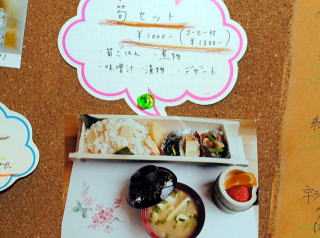 筍セット
¥1000- (コーヒー付
¥1300-)
・筍ごはん ・煮物
・味噌汁 ・漬物 ・デザート